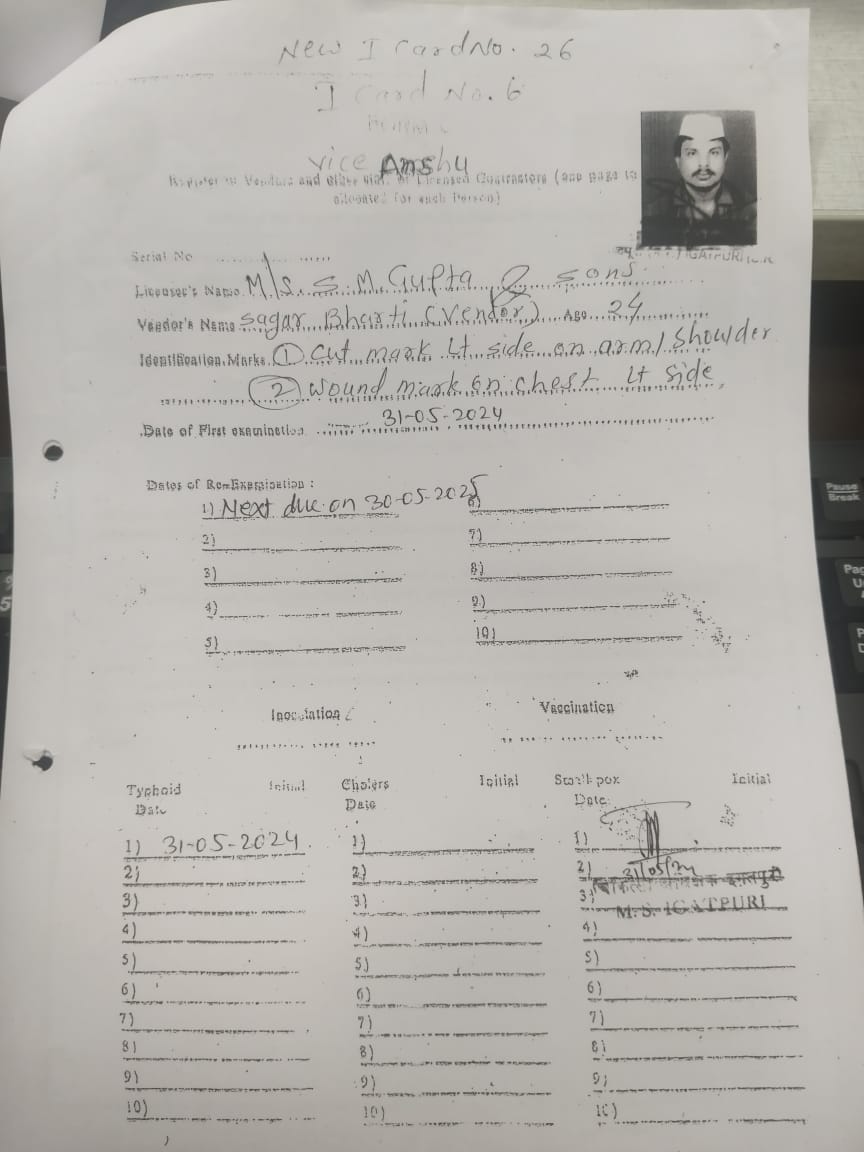 New I Card No. 26
I Card No. 6
Vice Amshu
Register of Vendors and other of Licensed Contractors (one page to
allocated for each Person)
IGATPURI
Serial No ......
Licensee's Name M/s. S. M. Gupta & sons.
Vendor's Name Sagar Bharti (Vendor) Age 24
Identification Marks ① Cut mark Lt side on arm/Shoulder
② Wound mark on chest Lt side,
Date of First examination 31-05-2024
Dates of Re-Examination :
1) Next due on 30-05-2025 6)
2) 7)
3) 8)
4) 9)
5) 10)
Inoculation Vaccination
Typhoid Initial Cholera Initial Small pox Initial
Date Date Date
1) 31-05-2024 1) 1)
2) 2) 2) 31/05/24
3) 3) 3) M.S. IGATPURI
4) 4) 4)
5) 5) 5)
6) 6) 6)
7) 7) 7)
8) 8) 8)
9) 9) 9)
10) 10) 10)
Pause
Break